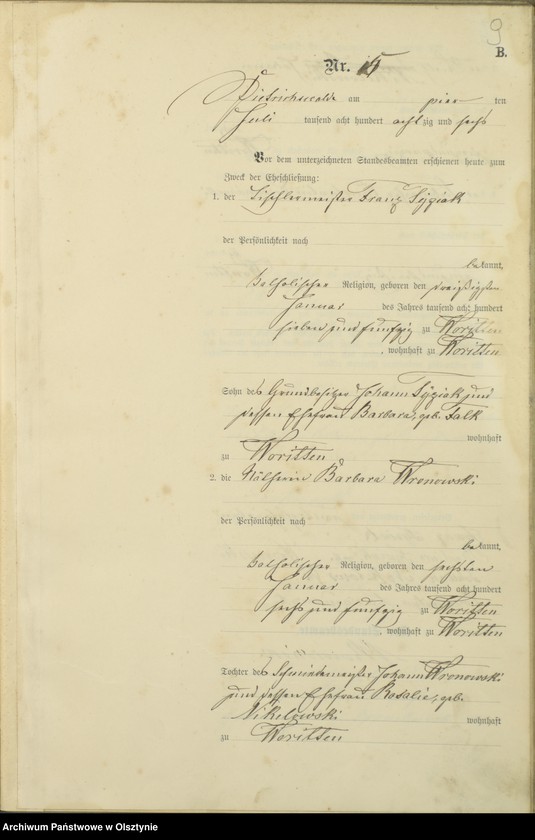 9
B.
Nr. 15
Dietrichswalde am vier ten
Juli tausend acht hundert acht zig und sechs
Vor dem unterzeichneten Standesbeamten erschienen heute zum
Zweck der Eheschließung:
1. der Tischlermeister Franz Tÿgiak
der Persönlichkeit nach
bekannt,
katholischer Religion, geboren den dreißigsten
Januar des Jahres tausend acht hundert
sieben und fünfzig zu Woritten
, wohnhaft zu Woritten
Sohn des Grundbesitzer Johann Tÿgiak und
dessen Ehefrau Barbara, geb. Falk
wohnhaft
zu Woritten
2. die Nätherin Barbara Wronowski
der Persönlichkeit nach
bekannt,
katholischer Religion, geboren den sechsten
Januar des Jahres tausend acht hundert
sechs und fünfzig zu Woritten
, wohnhaft zu Woritten
Tochter des Schmiedemeister Johann Wronowski
und dessen Ehefrau Rosalie, geb.
Nikelowski wohnhaft
zu Woritten
Archiwum Państwowe w Olsztynie